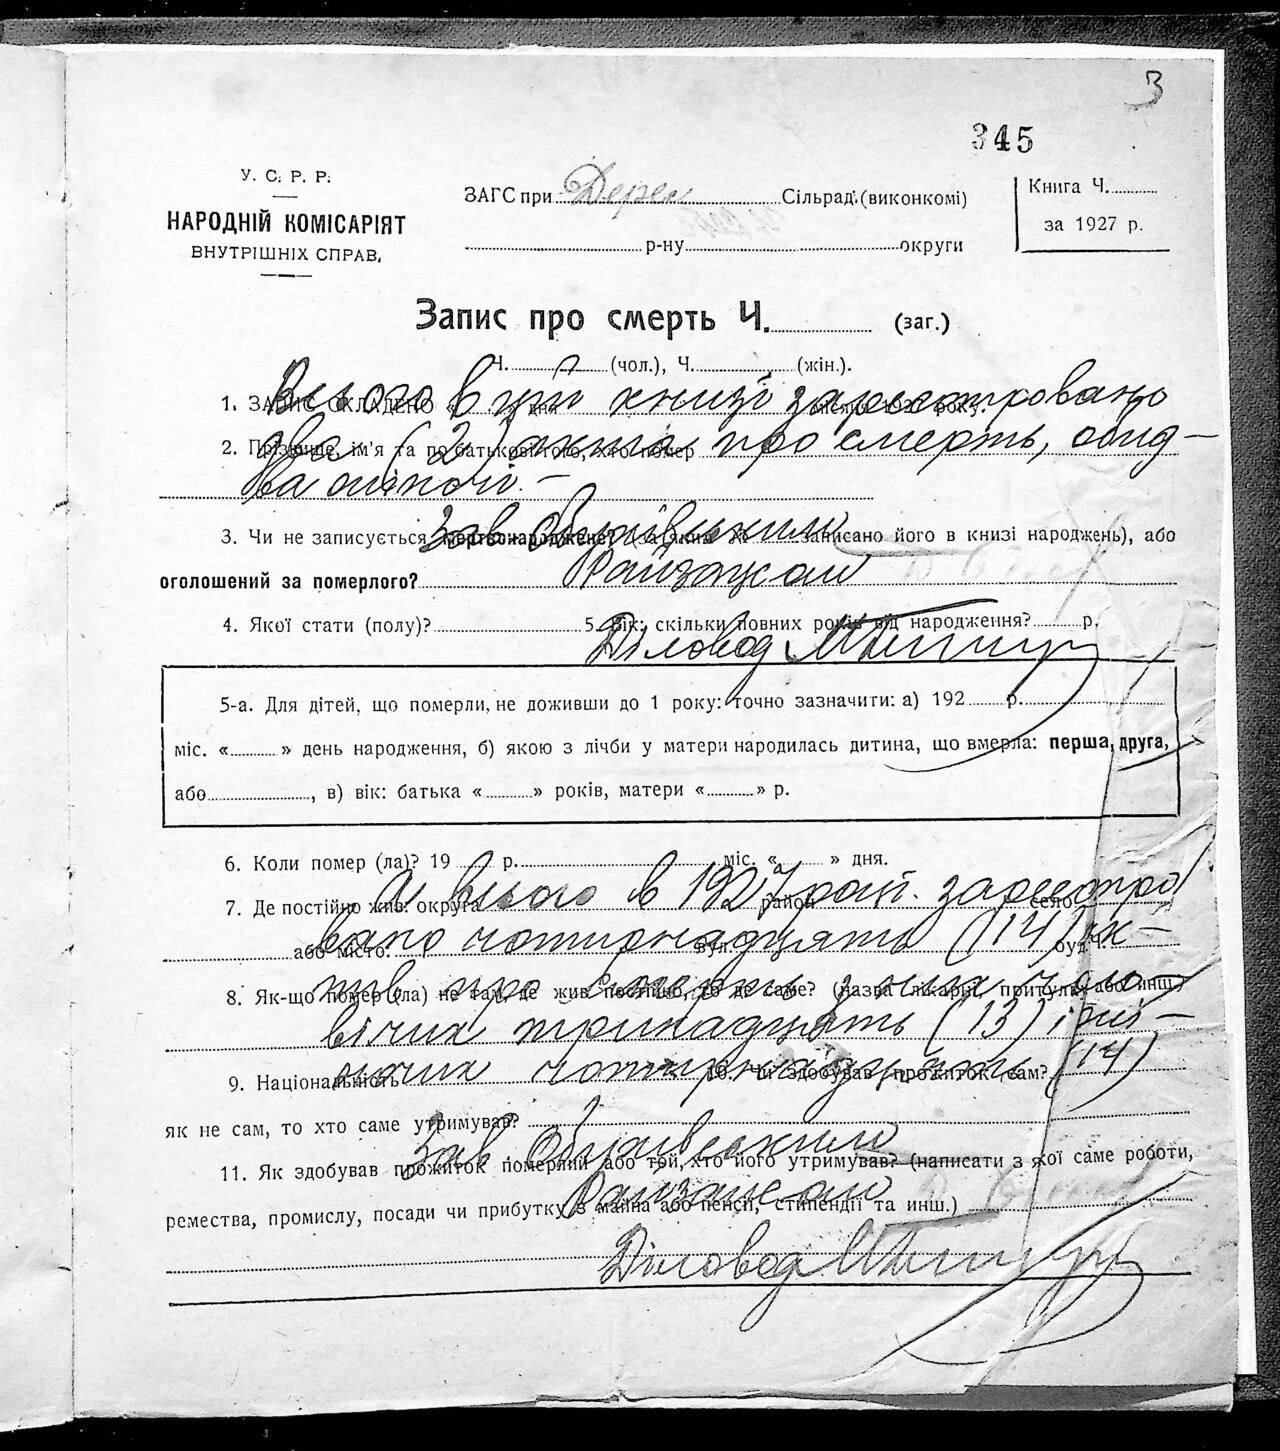 3
345
У. С. Р. Р.
НАРОДНІЙ КОМІСАРІЯТ
ВНУТРІШНІХ СПРАВ.
ЗАГС при Дерек Сільрад. (виконкомі)
р-ну округи
Книга Ч.
за 1927 р.
Запис про смерть Ч. (заг.)
Ч. (чол.), Ч. (жін.).
Всього в цій книзі зареєстровано
1. ЗАПИС СКЛАДЕНО « » дня місяця 192 року.
два (2) акта про смерть, обид-
2. Прізвище, ім'я та по батькові того, хто помер
ва жіночі.-
3. Чи не записується мертвонароджене? (за яким Ч. записано його в книзі народжень), або
Зав.
оголошений за померлого?
Райзагсом
4. Якої стати (полу)? 5. Вік: скільки повних років від народження? р.
Діловод
5-а. Для дітей, що померли, не доживши до 1 року: точно зазначити: а) 192 р.
міс. « » день народження, б) якою з лічби у матери народилась дитина, що вмерла: перша, друга,
або , в) вік: батька « » років, матери « » р.
6. Коли помер (ла)? 19 р. міс. « » дня.
А всього в 1927 році зареєстро
7. Де постійно жив: округа район село
вано чотирнадцять (114) ак-
або місто: вул. буд. Ч.
тів про смерть з них чоло
8. Як-що помер (ла) не там, де жив постійно, то де саме? (назва лікарні, притулку або инш.)
вічих тринадцять (13) і жі-
ночих чотирнадцять (14)
9. Національність 10. Чи здобував прожиток сам?
як не сам, то хто саме утримував?
Зав.
11. Як здобував прожиток померлий або той, хто його утримував? (написати з якої саме роботи,
Райзагсом
ремества, промислу, посади чи прибутку з майна або пенсії, стипендії та инш.)
Діловод